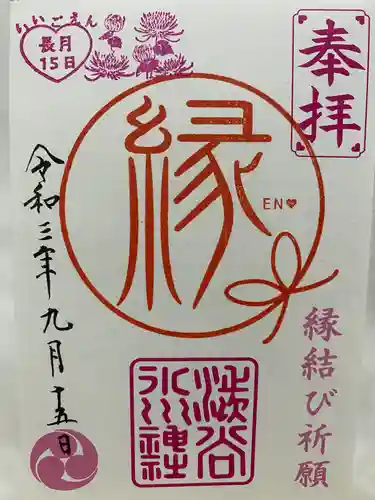 奉拝
いいごえん
長月
15日
縁
EN
令和三年九月十五日
縁結び祈願
渋谷
氷川神社